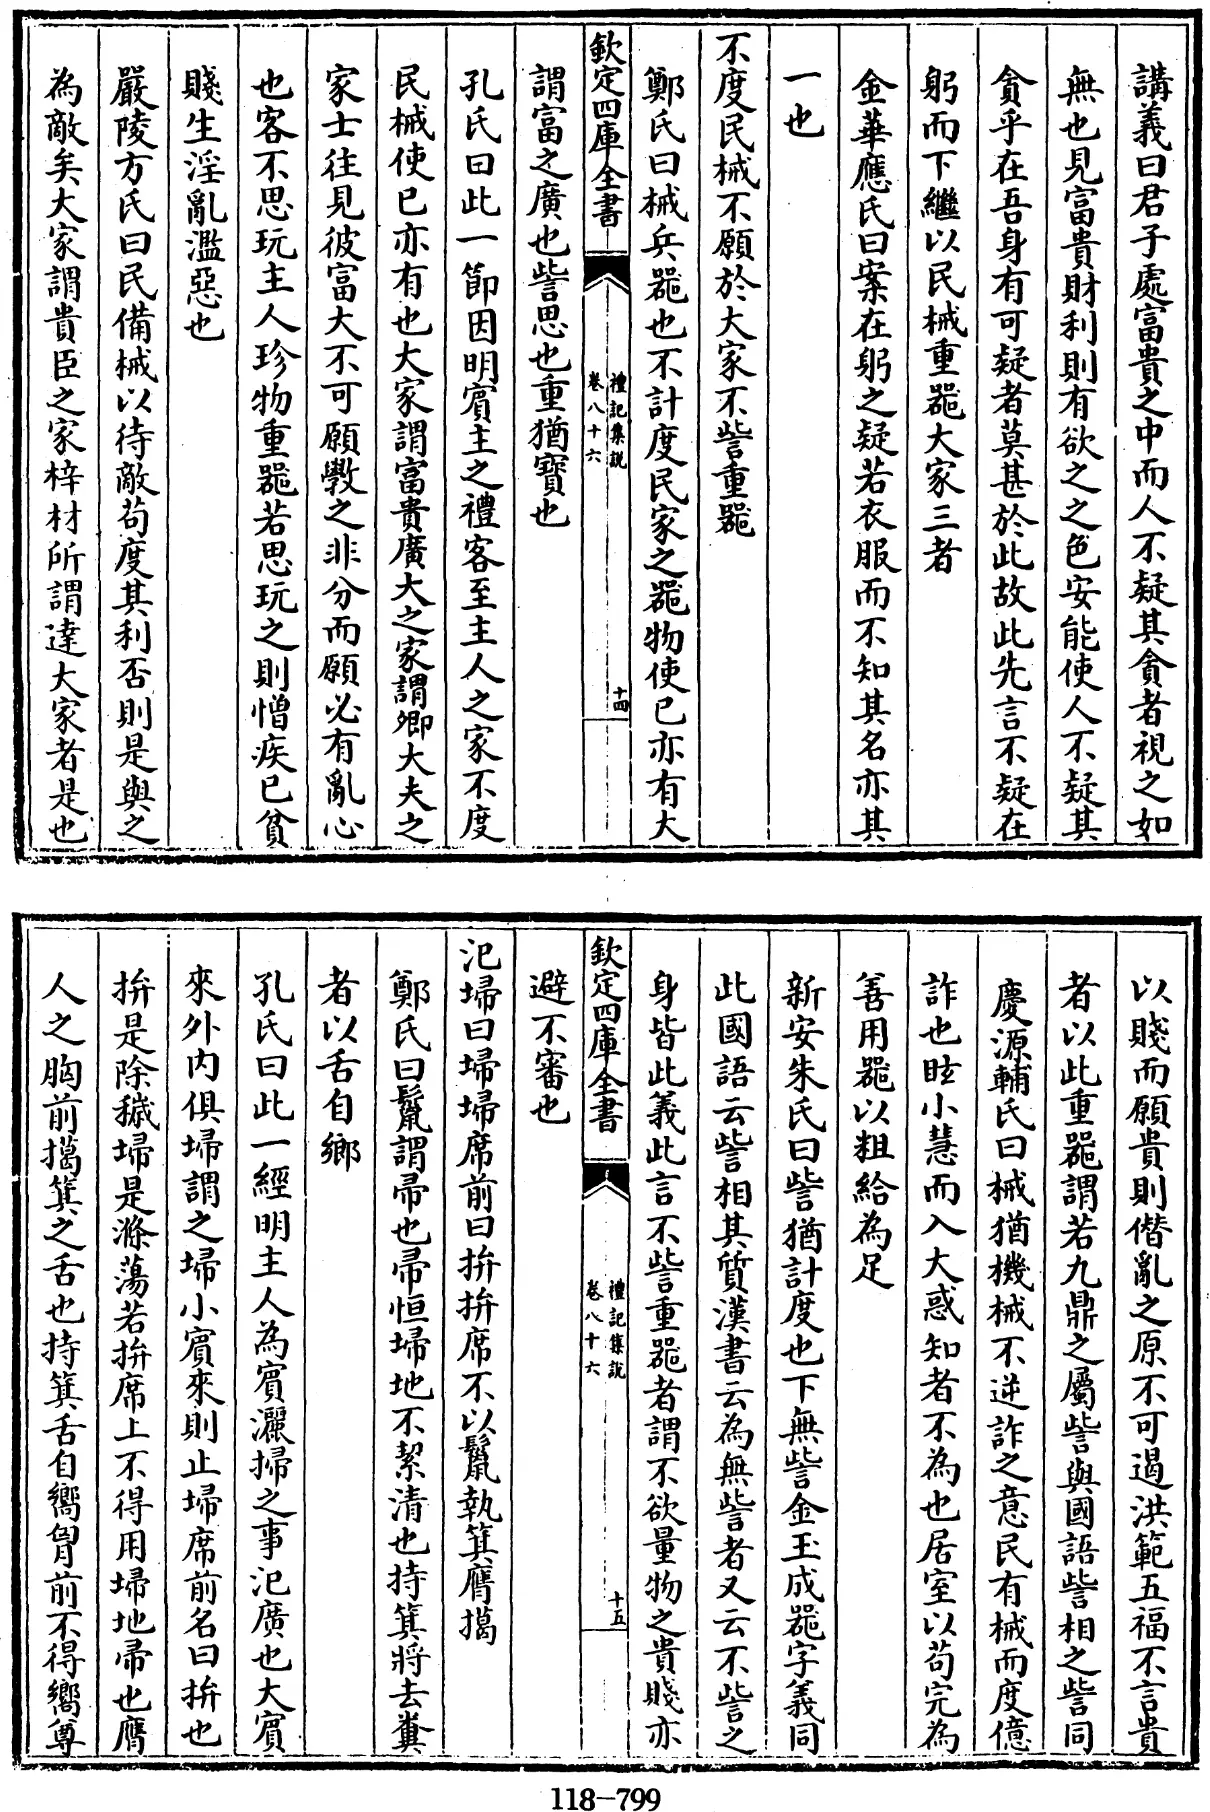 講義曰君子處富貴之中而人不疑其貪者視之如
無也見富貴財利則有欲之之色安能使人不疑其
貪乎在吾身有可疑者莫甚於此故此先言不疑在
躬而下繼以民械重器大家三者
金華應氏曰案在躬之疑若衣服而不知其名亦其
一也
不度民械不願於大家不訾重器
鄭氏曰械兵器也不計度民家之器物使已亦有大
欽定四庫全書
禮記集説
卷八十六
十四
謂富之廣也訾思也重猶寳也
孔氏曰此一節因明賓主之禮客至主人之家不度
民械使已亦有也大家謂富貴廣大之家謂卿大夫之
家士往見彼富大不可願斅之非分而願必有亂心
也客不思玩主人珍物重器若思玩之則憎疾已貧
賤生淫亂濫惡也
嚴陵方氏曰民備械以待敵茍度其利否則是與之
為敵矣大家謂貴臣之家梓材所謂達大家者是也
以賤而願貴則僭亂之原不可遏洪範五福不言貴
者以此重器謂若九鼎之屬訾與國語訾相之訾同
慶源輔氏曰械猶機械不逆詐之意民有械而度億
詐也眩小慧而入大惑知者不為也居室以茍完為
善用器以粗給為足
新安朱氏曰訾猶計度也下無訾金玉成器字義同
此國語云訾相其質漢書云為無訾者又云不訾之
身皆此義此言不訾重器者謂不欲量物之貴賤亦
欽定四庫全書
禮記集説
卷八十六
十五
避不審也
氾埽曰埽埽席前曰拚拚席不以鬛執箕膺擖
鄭氏曰鬛謂帚也帚恒埽地不絜清也持箕將去糞
者以舌自鄉
孔氏曰此一經明主人為賓灑掃之事氾廣也大賓
來外内俱埽謂之埽小賓來則止埽席前名曰拚也
拚是除穢埽是滌蕩若拚席上不得用埽地帚也膺
人之胸前擖箕之舌也持箕舌自嚮胷前不得嚮尊
118-799